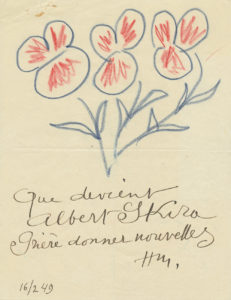 Que devient
Albert Skira
Prière donner nouvelles
HM.
16/2 49